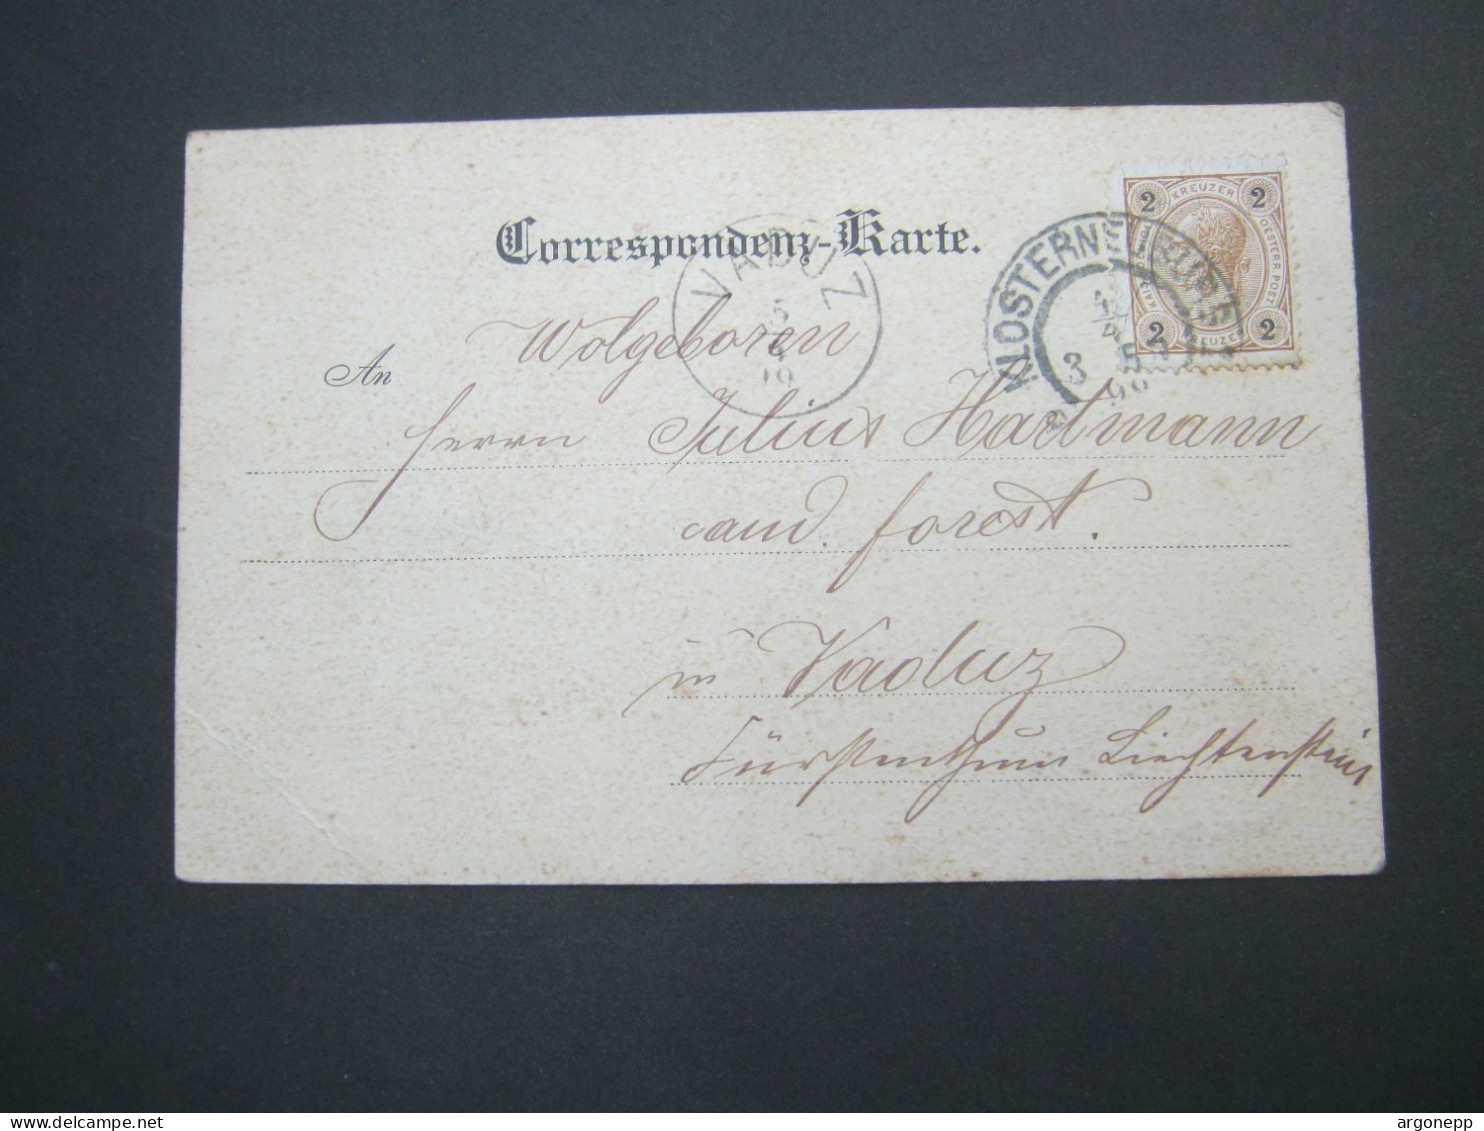 Correspondenz-Karte.
VADUZ
5
KLOSTERNEUBURG
3
KREUZER
2 2
2 2
OESTERR. POST
Wolgeboren
An
Herrn Julius Hartmann
cand. forest.
in Vaduz
Fürstenthum Liechtenstein
www.delcampe.net
argonepp